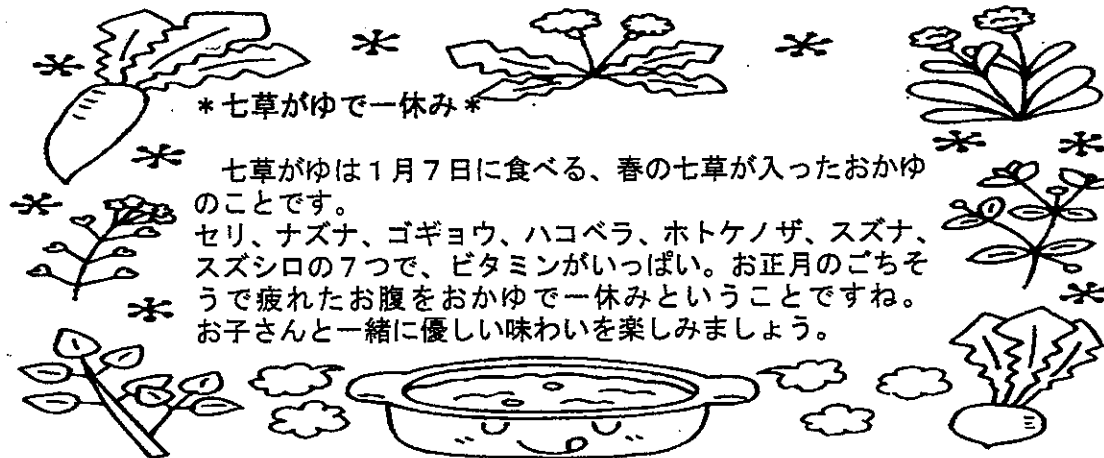 ＊七草がゆで一休み＊
　七草がゆは１月７日に食べる、春の七草が入ったおかゆ
のことです。
セリ、ナズナ、ゴギョウ、ハコベラ、ホトケノザ、スズナ、
スズシロの７つで、ビタミンがいっぱい。お正月のごちそ
うで疲れたお腹をおかゆで一休みということですね。
お子さんと一緒に優しい味わいを楽しみましょう。